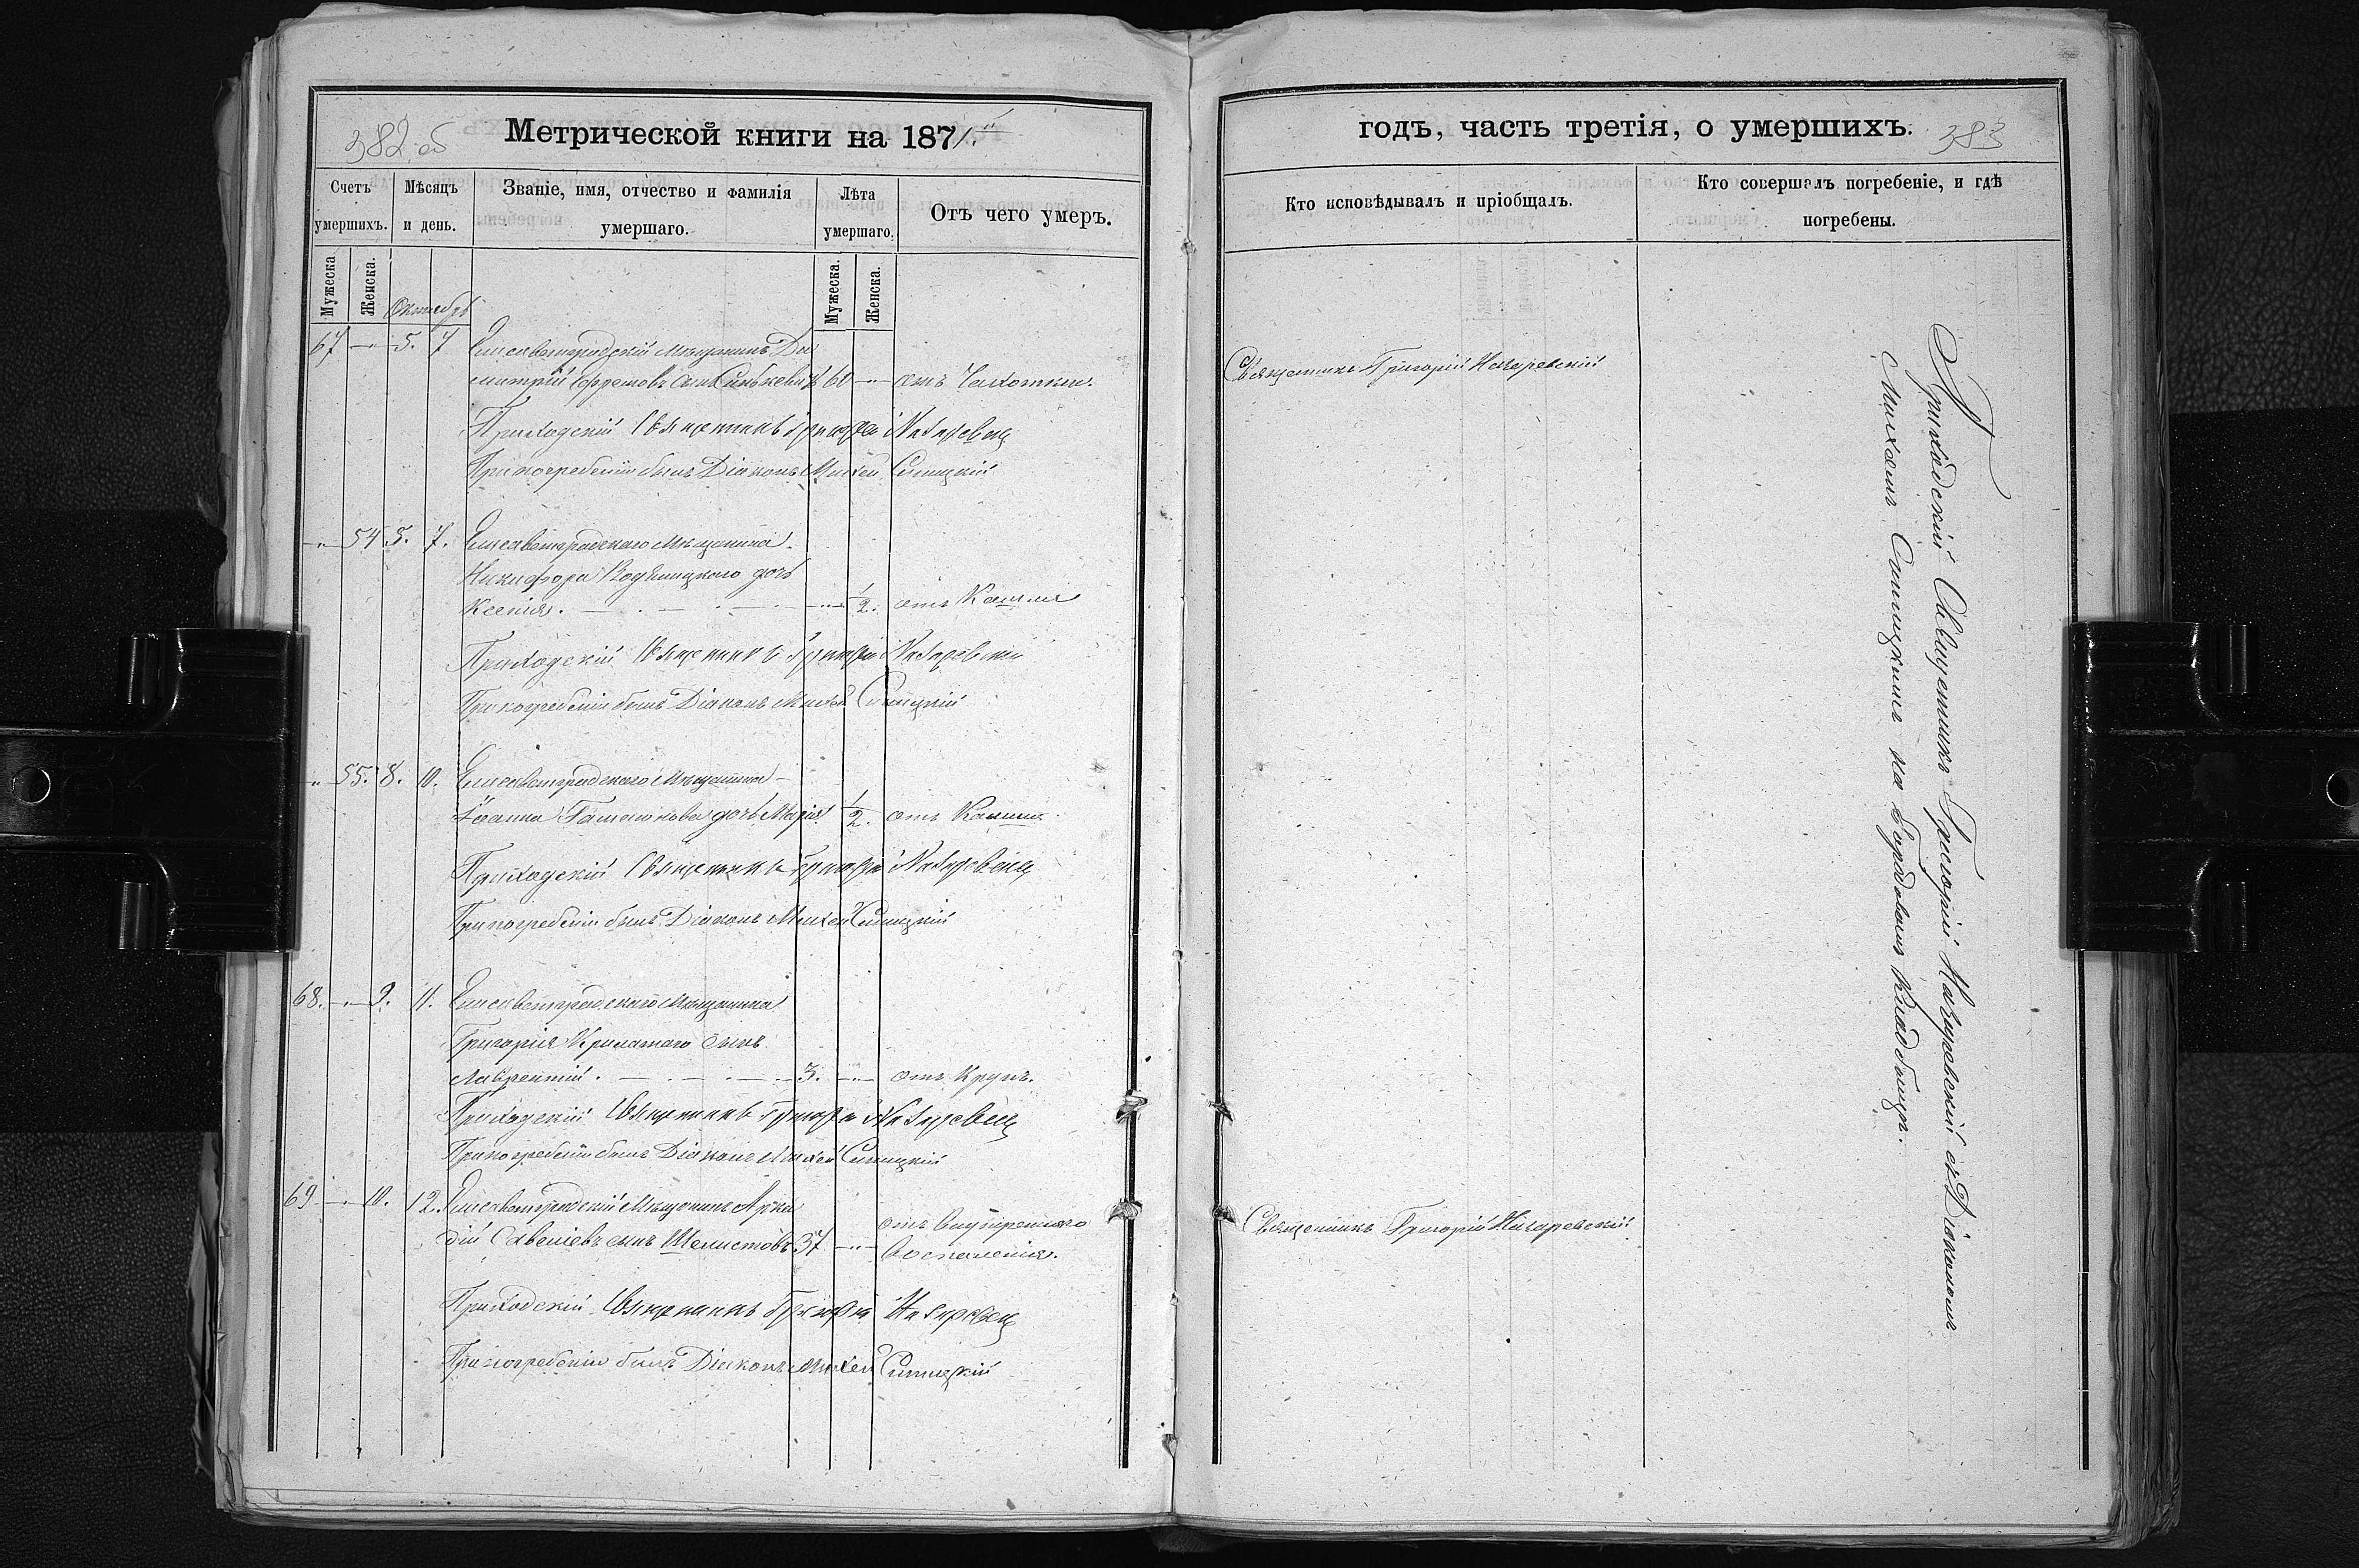 382 об
Метрической книги на 1871й
Счетъ умершихъ.
Мѣсяцъ и день.
Званіе, имя, отчество и фамилія умершаго.
Лѣта умершаго.
Отъ чего умеръ.
Мужеска.
Женска.
Октябрь
Мужеска.
Женска.
67 - 5. 7 Елисаветградскій мѣщанинъ Ди
митрій Ефремовъ сынъ 60 - отъ Чахотки.
Приходскій Священникъ Григорій Назаревскій
При погребеніи былъ Діаконъ Михаил Синицкій
- 54 5. 7. Елисаветградскаго мѣщанина
Никифора Водяницкаго дочь
Ксенія. - 1/2. отъ Кашля
Приходскій Священникъ Григорій Назаревскій
При погребеніи былъ Діаконъ Михаил Синицкій
- 55. 8. 10. Елисаветградскаго Мѣщанина
Іоанна дочь Марія 1/2. отъ Кашля
Приходскій Священникъ Григорій Назаревскій
При погребеніи былъ Діаконъ Михаил Синицкій
68. - 9. 11. Елисаветградскаго Мѣщанина
Григорія Крилатаго сынъ
Лаврентій. - 3. - отъ Крупъ.
Приходскій Священникъ Григорій Назаревскій
При погребеніи былъ Діаконъ Михаил Синицкій
69 - 10. 12. Елисаветградскій Мѣщанинъ Арка
дій Савеліевъ сынъ Шелистовъ 37 - отъ внутренняго
воспаленія.
Приходскій Священникъ Григорій Назаревскій
При погребеніи былъ Діаконъ Михаил Синицкій
годъ, часть третія, о умершихъ.
383
Кто исповѣдывалъ и пріобщалъ.
Кто совершалъ погребеніе, и гдѣ погребены.
Священникъ Григорій Назаревскій
Священникъ Григорій Назаревскій
Приходскій Священникъ Григорій Назаревскій съ Діакономъ
Михаилъ Синицкимъ на Городовомъ Кладбищѣ.